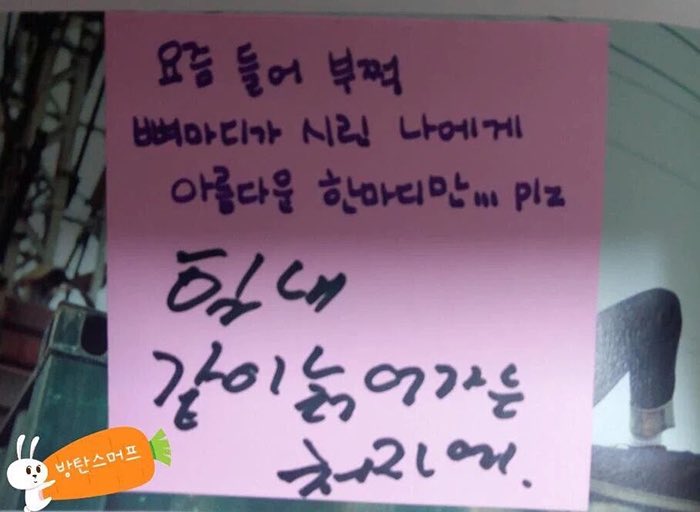 요즘 들어 부쩍
뼈마디가 시린 나에게
아름다운 한마디만... plz
힘내
같이 늙어가는
처지에.
방탄스머프